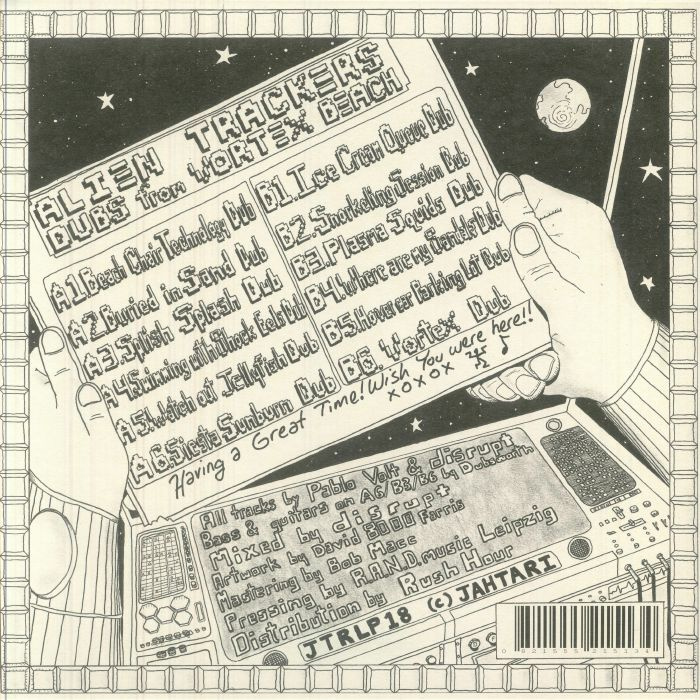 ALIEN TRACKERS
DUBS from VORTEX BEACH
A1.Beach Chair Technology Dub
A2.Buried in Sand Dub
A3.Splish Splash Dub
A4.Swimming with Shock Eels Dub
A5.Watch out Jellyfish Dub
A6.Siesta Sunburn Dub
B1.Ice Cream Queue Dub
B2.Snorkeling Session Dub
B3.Plasma Squids Dub
B4.Where are my Sandals Dub
B5.Hovercar Parking Lot Dub
B6.Vortex Dub
Having a Great Time! Wish You were here!!
xoxox
All tracks by Pablo Volt & disrupt
Bass & guitars on A6/B3/B6 by Dubsworth
Mixed by disrupt
Artwork by David BOOO Farris
Mastering by Bob Macc
Pressing by R.A.N.D. music Leipzig
Distribution by Rush Hour
JTRLP18 (c) JAHTARI